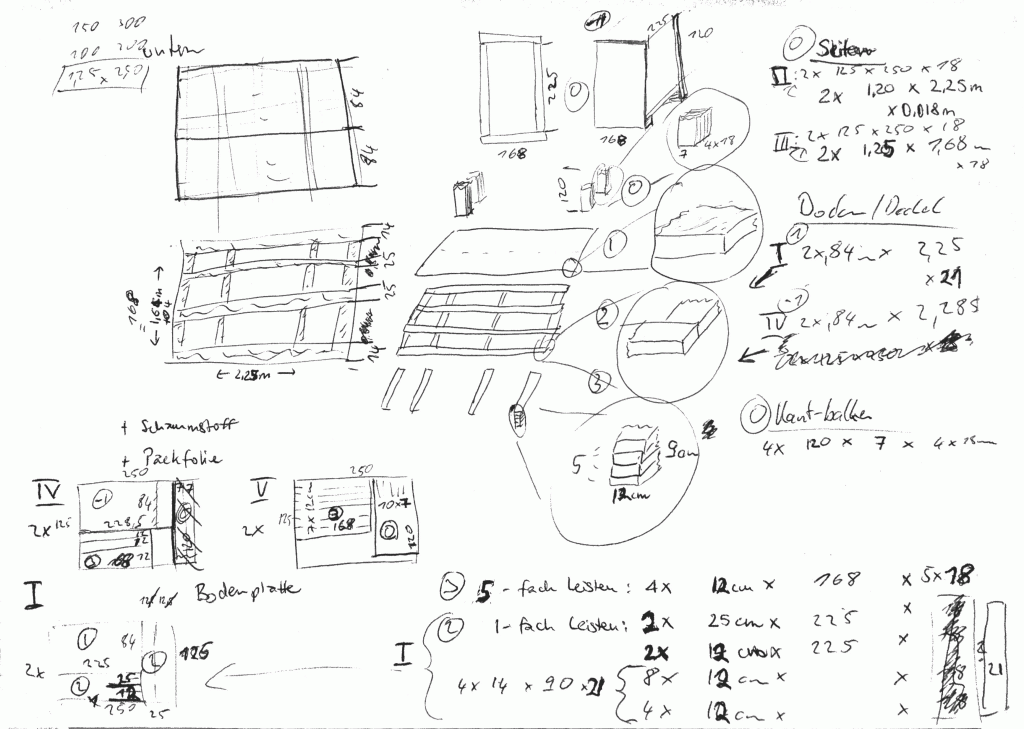 150 300
100 200
125 x 250
unten
84
84
225
168
225
120
168
7 4x18
120
0 Seiten
II: 2x 125 x 250 x 18
2x 1,20 x 2,25m
x 0,018m
III: 2x 125 x 250 x 18
2x 1,25 x 1,68m
x 18
Boden/Deckel
1
I 2x,84m x 2,25
x 21
-1
IV 2x,84m x 2,285
14
25
25
14
168
= 1,68m
← 2,25m →
1
2
3
0 Kant-balken
4x 120 x 7 x 4x18mm
5
9cm
12cm
+ Schaumstoff
+ Packfolie
IV
2x
250
125
-1
84
228,5
12
12
3 168
120
V
2x
250
125
7 x 12cm
3
168
10x7
0
120
I
Bodenplatte
2x
1
84
225
2
2
25
12
250
25
125
3 5-fach Leisten: 4x 12cm x 168 x 5x18
2 1-fach Leisten: 2x 25cm x 225 x
2x 12cm x 225 x
I
4x14 x 90 x 21
8x 12cm x x
4x 12cm x x
21